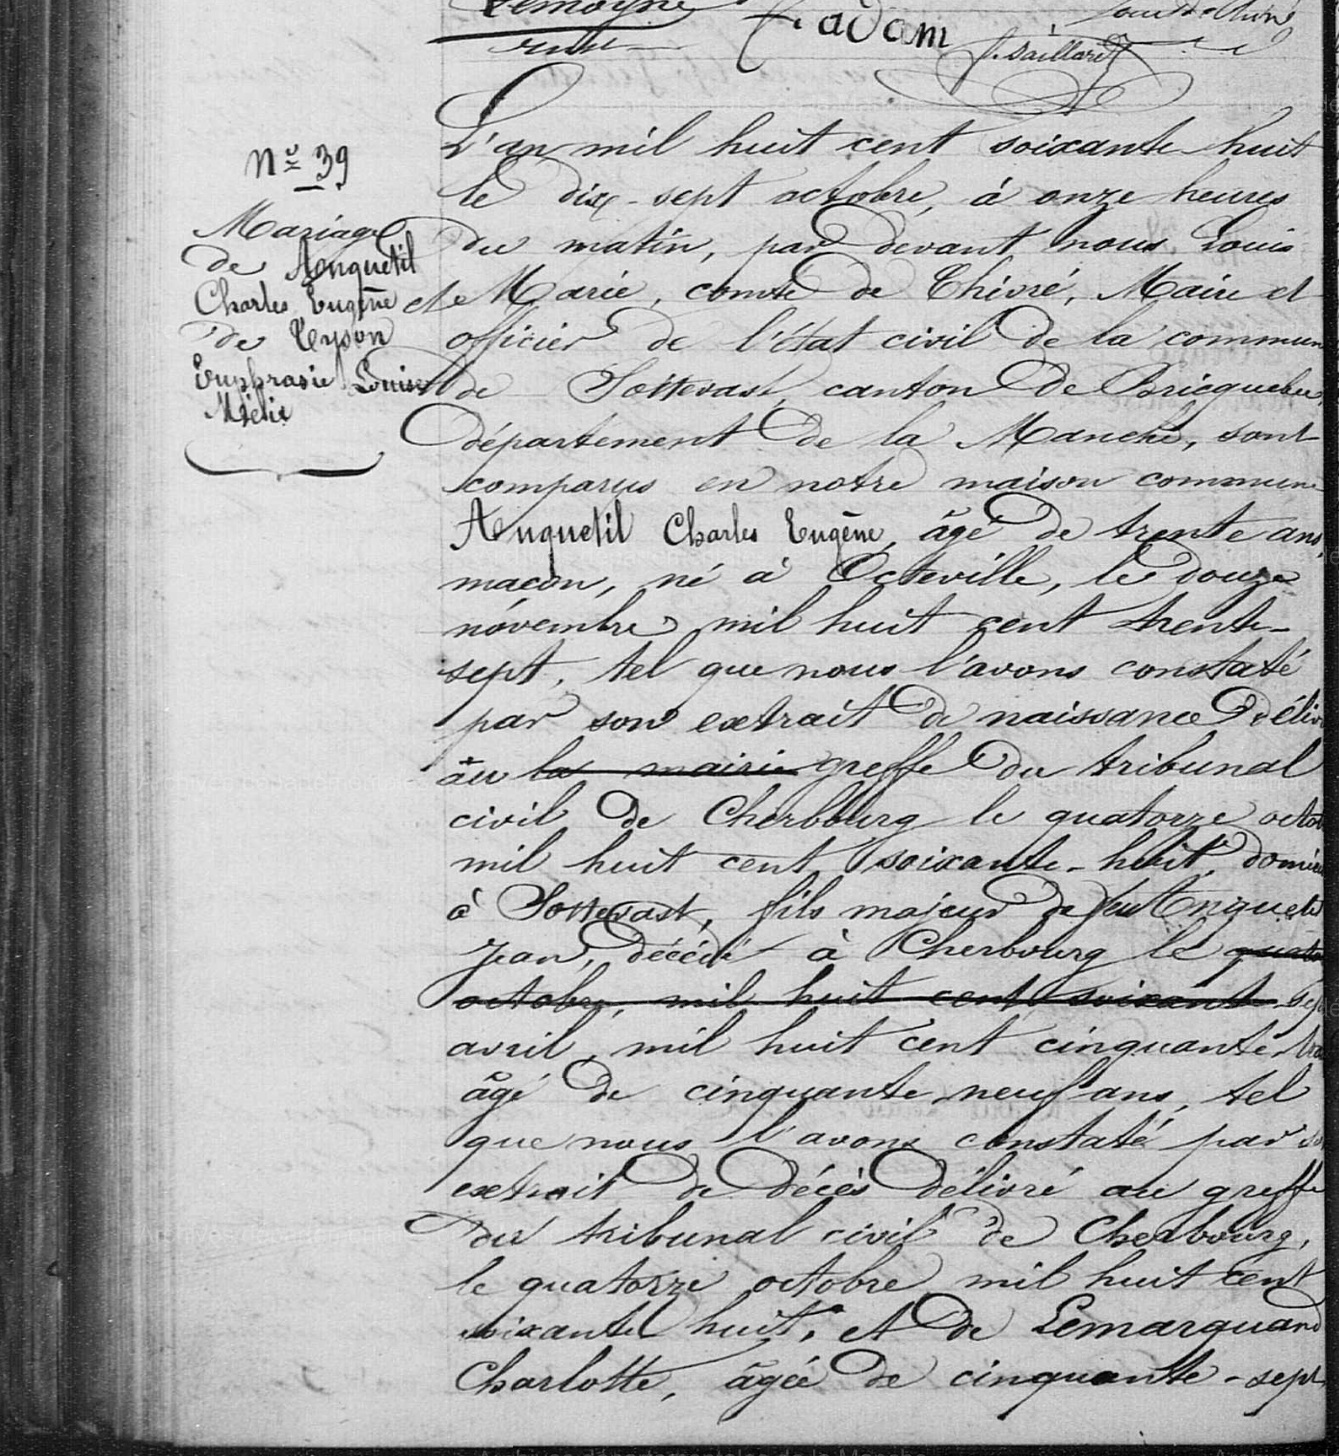 Lemoyne
Cadam
f. Saillard
Nº 39
Mariage
de Anquetil
Charles Eugène et
de Tyson
Euphrasie Louise
L'an mil huit cent soixante huit
le dix-sept octobre, à onze heures
du matin, par devant nous Louis
Marie, comte de Thivré, Maire et
officier de l'état civil de la commune
de Sottevast, canton de Bricquebec,
département de la Manche, sont
comparus en notre maison commune
Anquetil Charles Eugène, âgé de trente ans,
maçon, né à Octeville, le douze
novembre mil huit cent trente-
sept, tel que nous l'avons constaté
par son extrait de naissance déliv
au la mairie greffe du tribunal
civil de Cherbourg le quatorze octob
mil huit cent soixante-huit, domici
à Sottevast, fils majeur de feu Anquetil
Jean, décédé à Cherbourg le
octobre, mil huit cent soixante sept
avril, mil huit cent cinquante
âgé de cinquante neuf ans, tel
que nous l'avons constaté par so
extrait de décès délivré au greffe
du tribunal civil de Cherbourg,
le quatorze octobre mil huit cent
soixante huit, et de Lemarquand
Charlotte, âgée de cinquante-sept